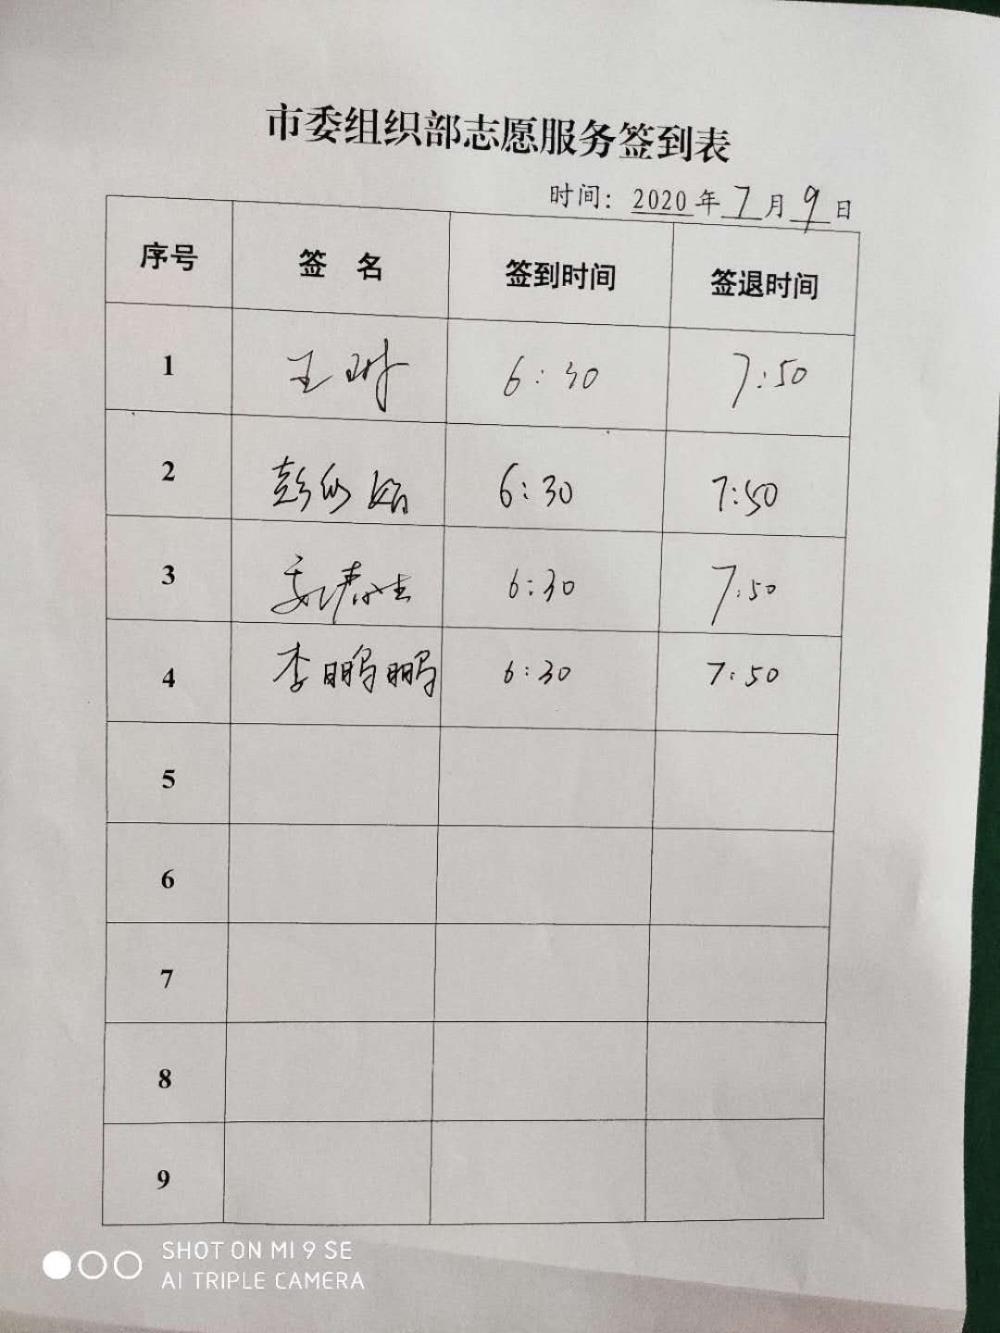 市委组织部志愿服务签到表
时间：2020年7月9日
序号 签 名 签到时间 签退时间
1 王琳 6:30 7:50
2 彭 6:30 7:50
3 6:30 7:50
4 李鹏鹏 6:30 7:50
5
6
7
8
9
SHOT ON MI 9 SE
AI TRIPLE CAMERA